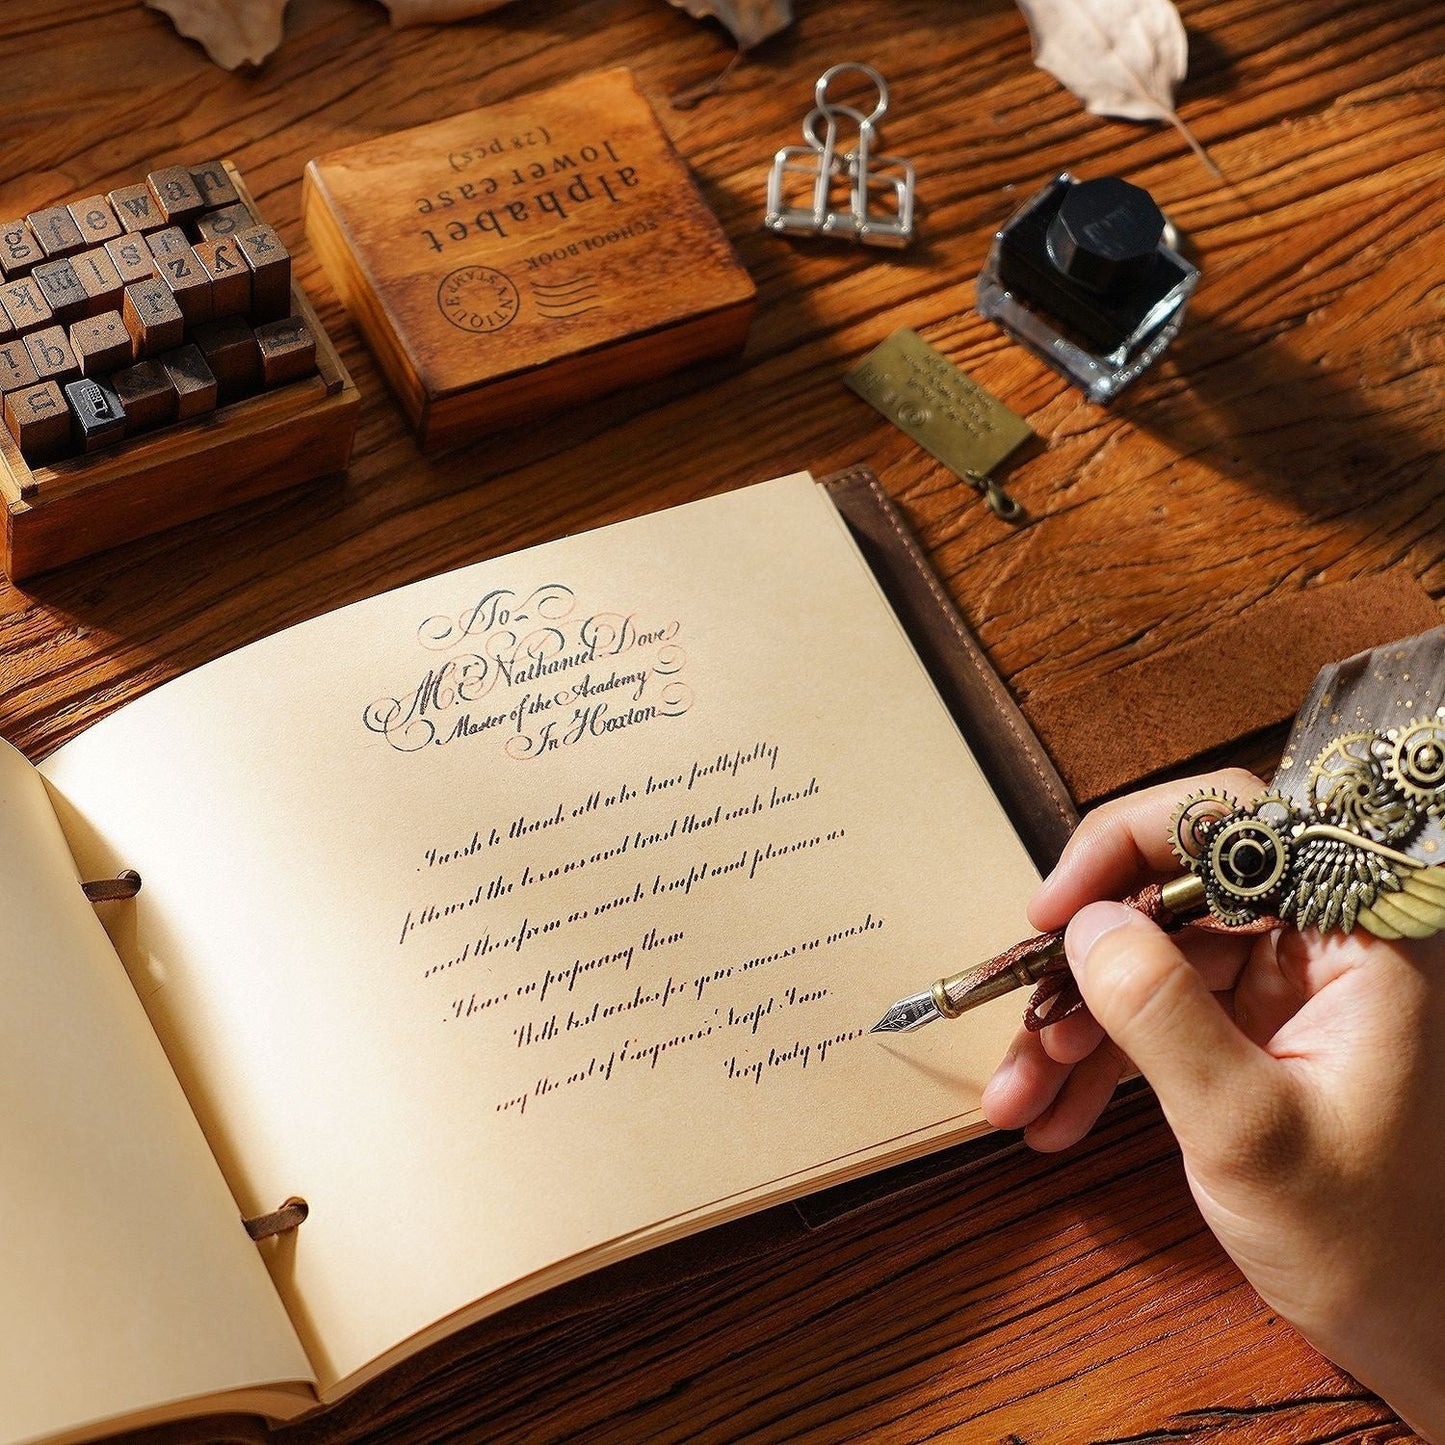 g f e w a n
k m l s f c
z y x
r
i q
n
alphabet
lower case
(28 pcs)
SCHOOLBOOK
ANTIQUE STAMP
To
Mr. Nathaniel Dove
Master of the Academy
In Hoxton
I wish to thank all who have faithfully
followed the lessons and trust that each has
received therefrom as much benefit and pleasure as
I have in preparing them
With best wishes for your success in
ing the art of Engravers' Script I am.
Very truly yours